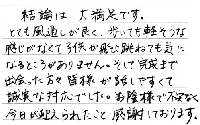 結論は 大満足です。
とても風通しが良く、歩いても軽そうな
感じがなくて子供が飛び跳ねても気に
なるところがありません。そして完成まで
出会った方々皆様が話しやすくて
誠実な対応でした。お陰様で不安なく
今日が迎えられたこと感謝しております。